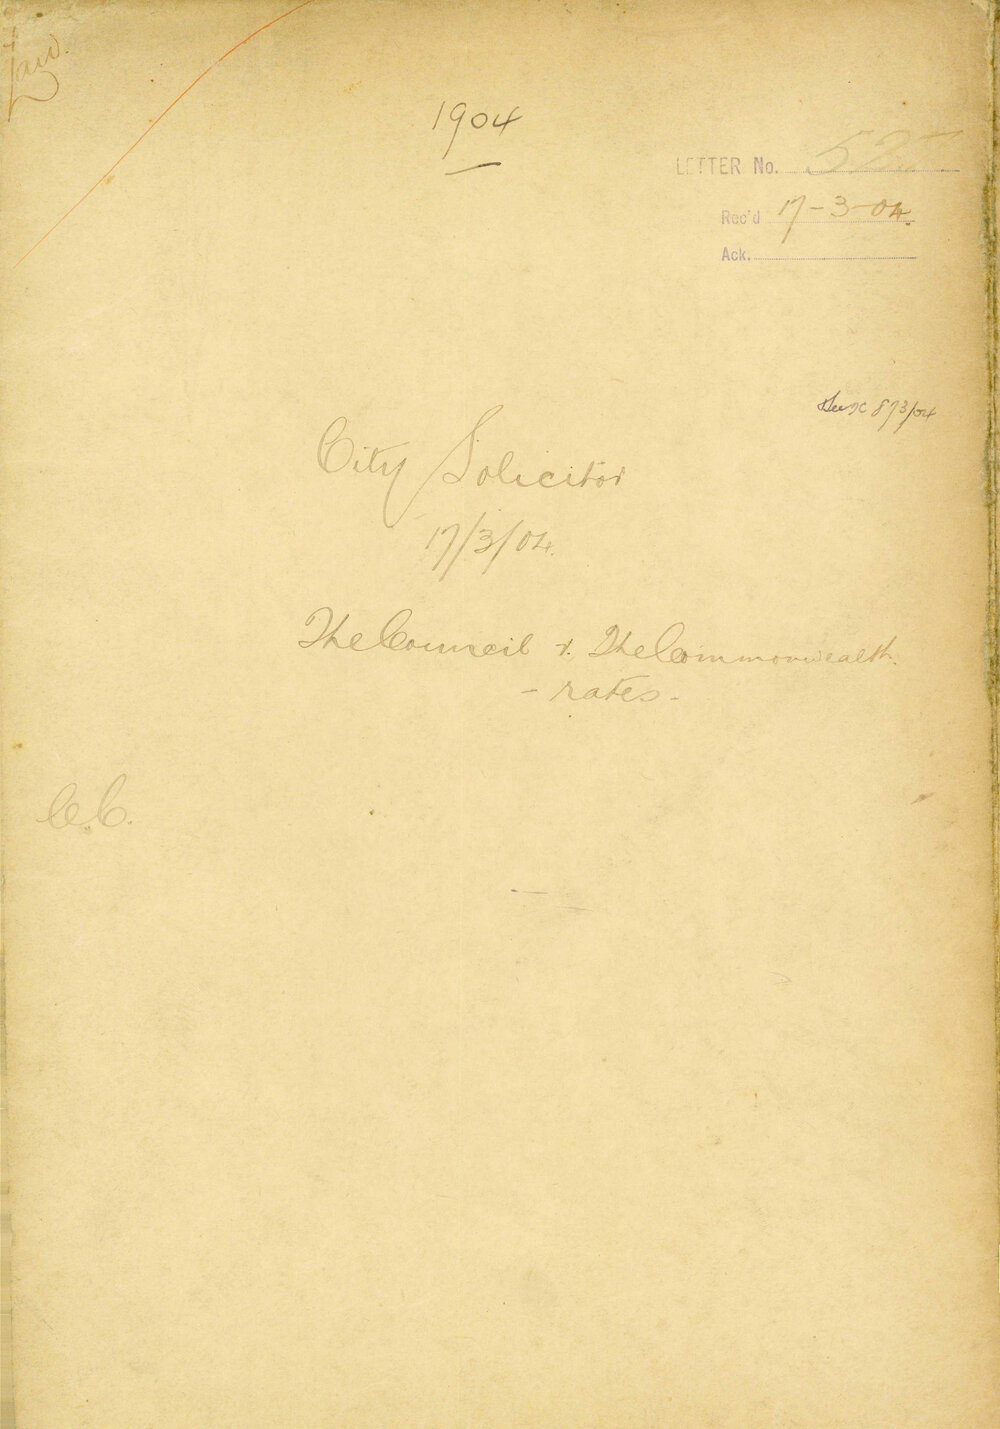 Law.
1904
LETTER No. 527
Rec'd 17-3-04.
Ack.
See 873/04
City Solicitor
17/3/04.
The Council v. The Commonwealth.
- rates -
C.C.